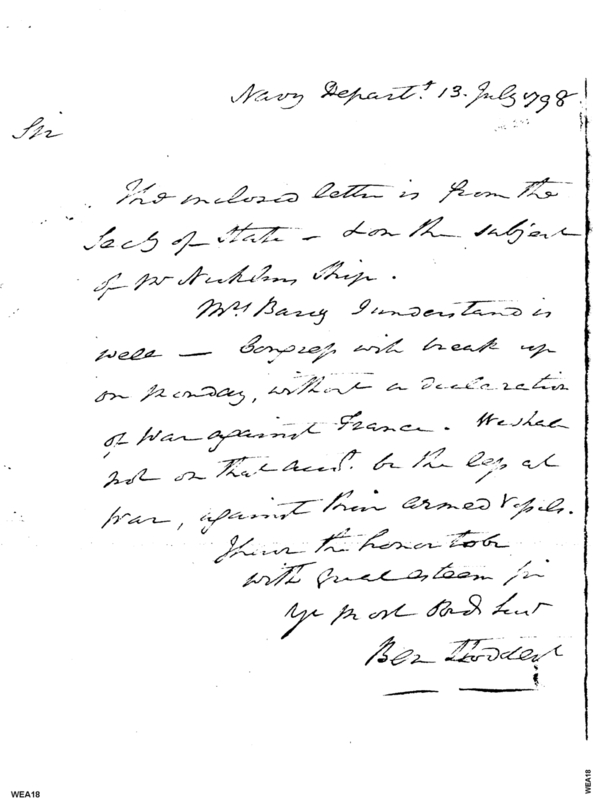 Navy Depart.t 13. July 1798
Sir
The inclosed letter is from the
Secy of State – & on the subject
of Mr Nicklins Ship.
Mrs Barry I understand is
well — Congress will break up
on Monday, without a declaration
of War against France. We shall
not on that acct. be the less at
War, against their armed Vessels.
I have the honor to be
with great esteem Sir
Yr most Obed Servt
Ben Stoddert
WEA18
WEA18